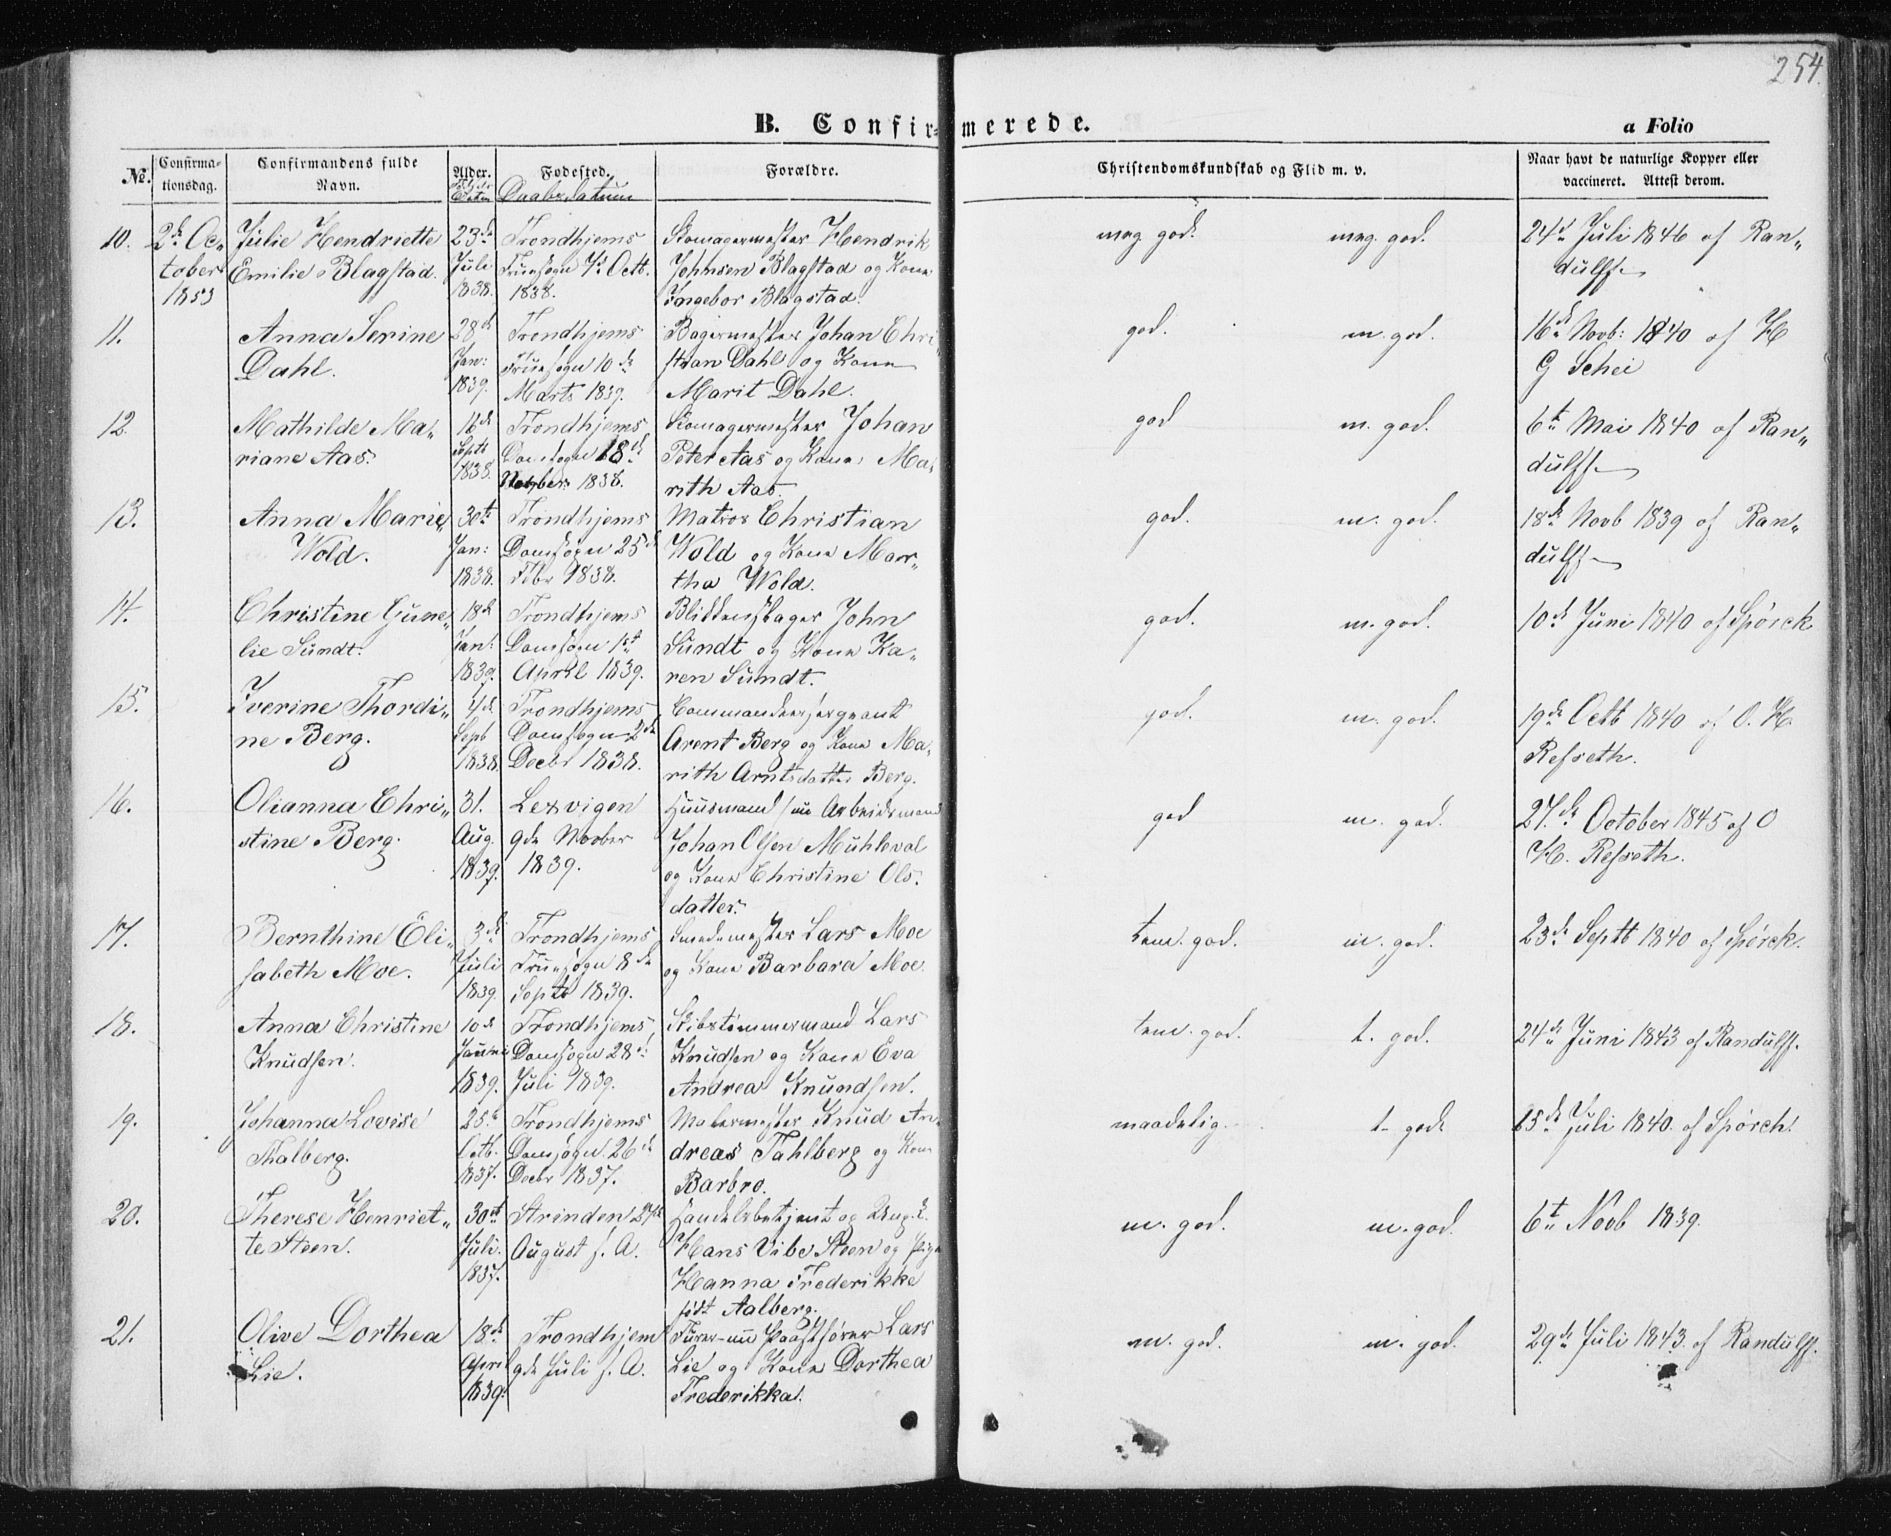 254.
B. Confirmerede.
a Folio
No.
Confirma-
tionsdag.
Confirmandens fulde
Navn.
Alder.
Fødested.
Daabsdatum
Forældre.
Christendomskundskab og Flid m. v.
Naar havt de naturlige Kopper eller
vaccineret. Attest derom.
10. 2d Oc- Julie Hendriette 23de Trondhjems Skomagermester Hendrik meg. godt meg. god. 24d Juli 1846 af Ran-
tober Emilie Blagstad. Juli Fruesogn 7d Octb. Johnsen Blagstad og Kone dulff
1853 1838. 1838. Ingebor Blagstad.
11. Anna Serine 28de Trondhjems Bagermester Johan Chri- god. m. god. 16de Novb: 1840 af H
Dahl. Jan: Fruesogn 10de stian Dahl og Kone G Schei
1839. Marts 1839. Marit Dahl.
12. Mathilde Ma- 16de Trondhjems Skomagermester Johan god m. god. 6t Mai 1840 af Ran-
riane Aas. Septb Domsogn 18de Peter Aas og Kone Ma- dulff
1838. 1838. rith Aas.
13. Anna Marie 30te Trondhjems Matros Christian god. m. god. 18de Novb 1839 af Ran-
Wold. Jan: Domsogn 25de Wold og Kone Mar- dulff
1838. Febr 1838. tha Wold.
14. Christine Gune- 18de Trondhjems John god. m. god. 10de Juni 1840 af Spørck
lie Sundt. Jan: Domsogn 1st Sundt og Kone Ka-
1839. April 1839. ren Sundt.
15. Iverine Thordi- 4de Trondhjems Commandeersergeant god. m. god. 19de Octb 1840 af O. H.
ne Berg. Sept Domsogn 2de Arent Berg og Kone Ma- Refseth.
1838. Decbr 1838. rith Arntsdatter Berg.
16. Olianna Chri- 31. Lexvigen Huusmand nu Arbeidsmand god m. god. 27.de October 1845 af O
stine Berg. Aug. 9de Novber Johan Olsen Muhleval H. Refseth.
1839. 1839. og Kone Christine Ols.
datter.
17. Bernthine Eli- 3de Trondhjems Smedemester Lars Moe tem. god. m. god. 23de Septb 1840 af Spørck.
sabeth Moe. Juli Fruesogn 8de og Kone Barbara Moe.
1839. Septb 1839.
18. Anna Christine 10de Trondhjems Skibstømmermand Lars tem. god. t. god. 24de Juni 1843 af Randulff.
Knudsen. Domsogn 28de Knudsen og Kone Eva
1839. Juli 1839. Andrea Knundsen.
19. Johanna Lovise 25de Trondhjems Malermester Knud An- maadelig t. godt 15de Juli 1840. af Spørch.
Thalberg. Octb. Domsogn 26de dreas Tahlberg og Kone
1837. Decbr 1837. Barbro.
20. Therese Henriet- 30te Strinden 27de Handelsbetjent og Ungk. m. god. m. god. 6t Novb 1839.
te Steen. Juli. August s. A. Hans Vibe Steen og Pige
1837. Hanna Frederikke
født Aalberg.
21. Olive Dorthea 18de Trondhjem Furer nu Lars m. god. m. god. 29de Juli 1843. af Randulff.
Lie. April 9de Juli s. A. Lie og Kone Dorthea
1839. Frederikka.